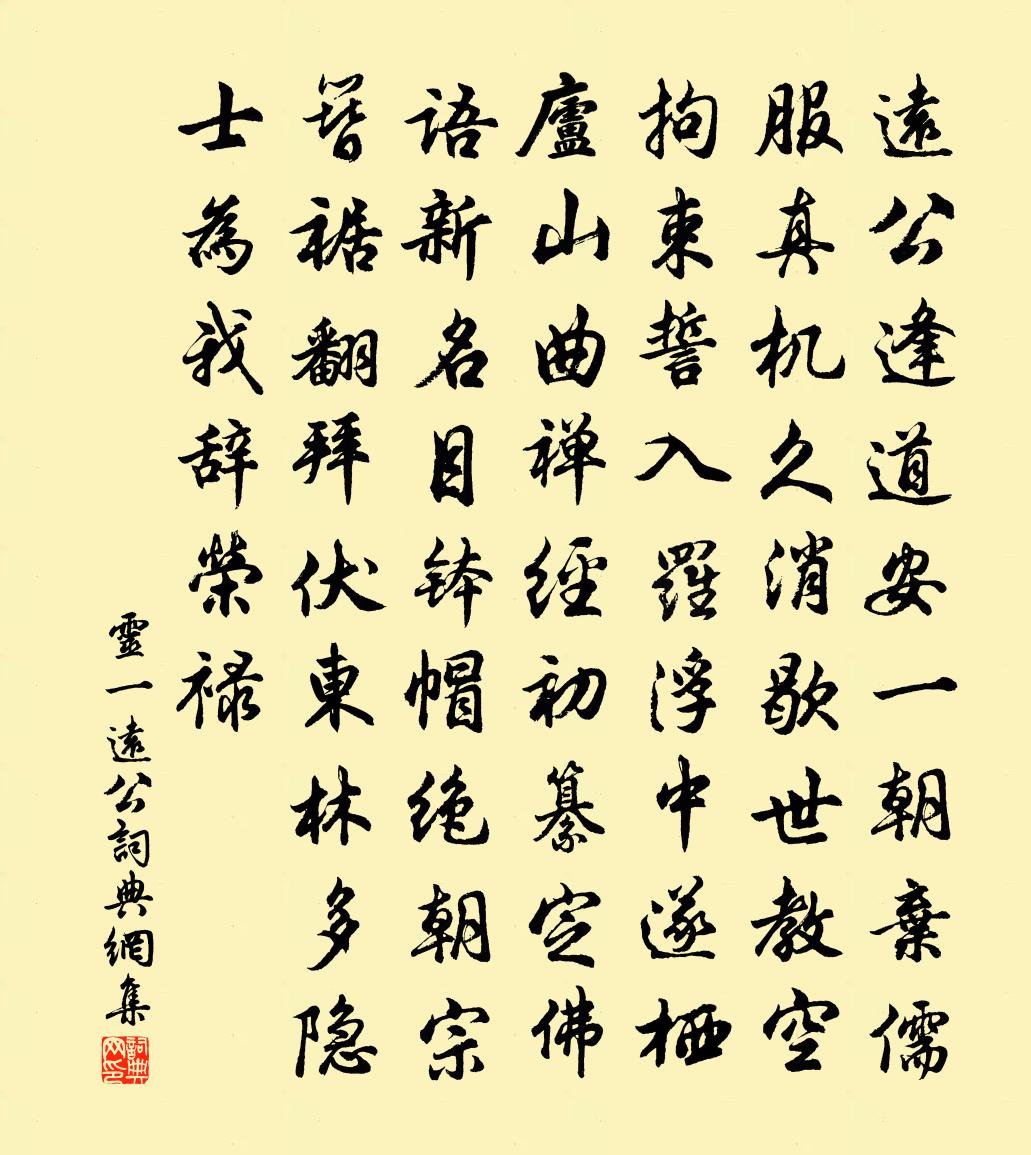 遠公逢道安一朝棄儒
服真机久消歇世教空
拘束誓入羅浮中遂栖
廬山曲禅經初纂定佛
语新名目钵帽绝朝宗
簪裾翻拜伏東林多隐
士為我辞榮禄
靈一遠公詞典網集
詞典网印